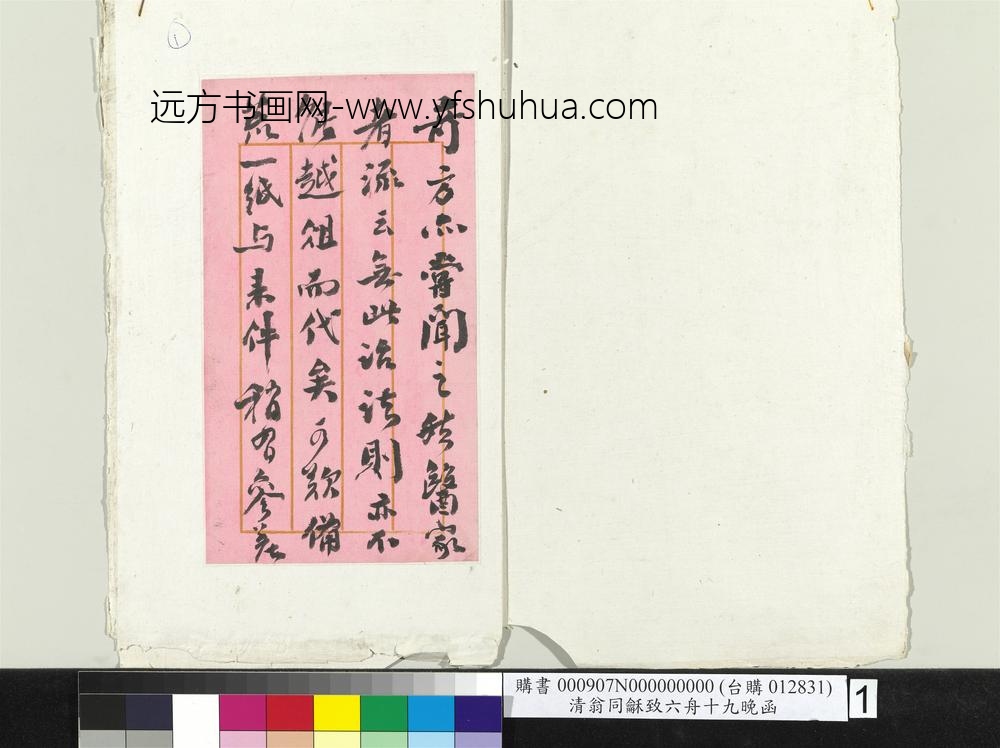 远方书画网-www.yfshuhua.com
奇方亦嘗聞之然醫家
者流云無此治法則亦不
越俎而代矣可歎備
一紙与来件稍有參差
購書 000907N000000000 (台購 012831)
清翁同龢致六舟十九晚函
1